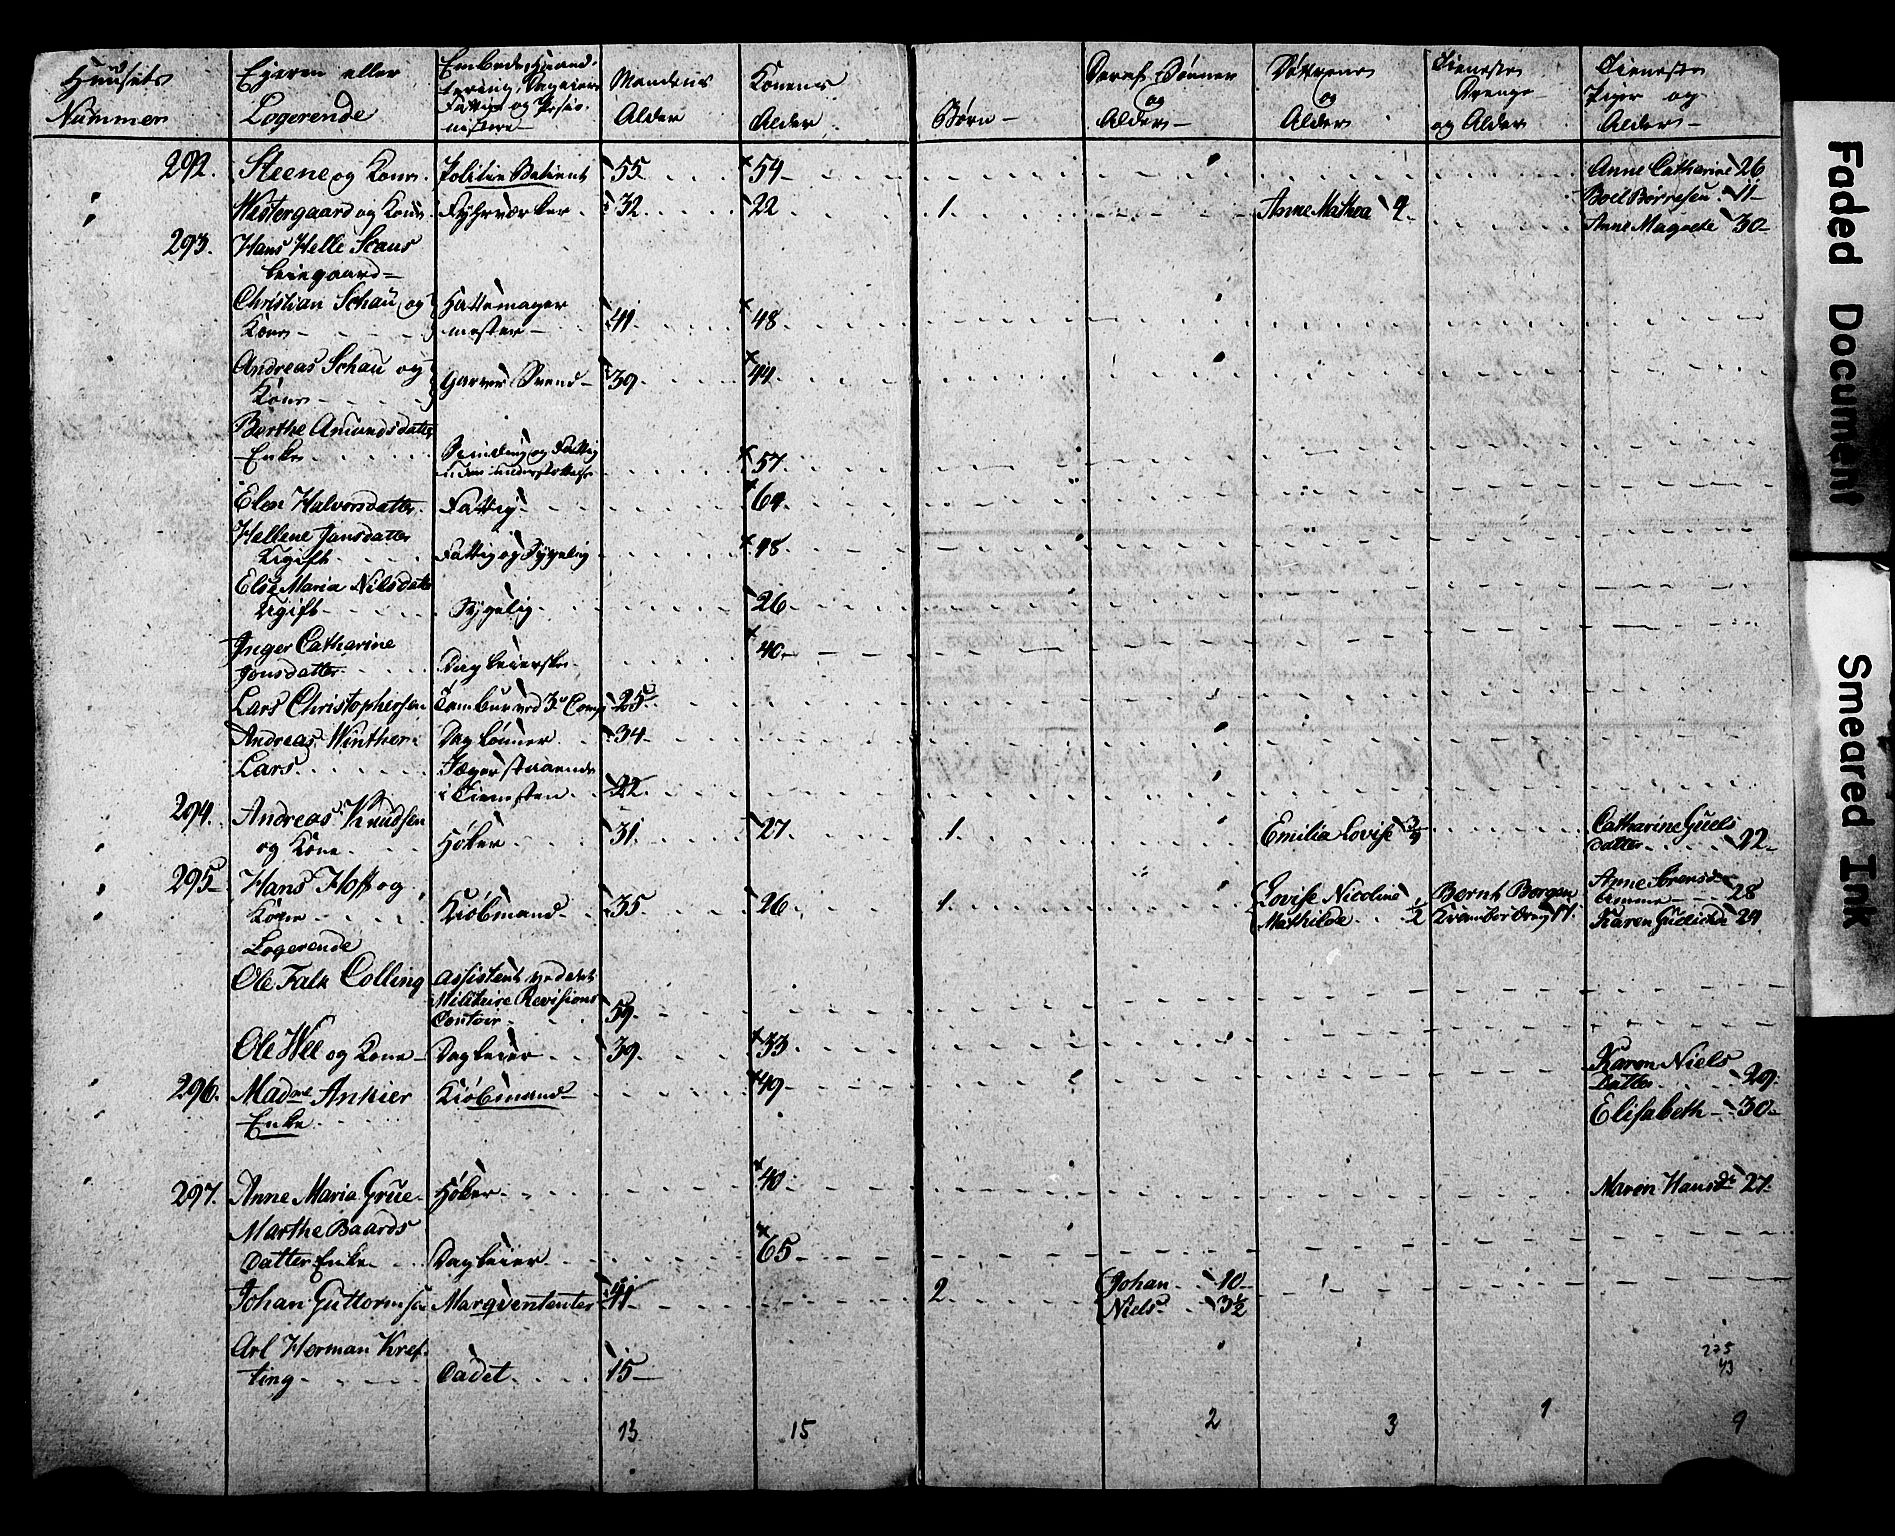 Huusets Nummer
Ejeren eller Logerende
Mandens Alder
Konens Alder
Børn
Deraf Sønner og Alder
Døttrene og Alder
Tieneste Drenge og Alder
Tieneste Piger og Alder
292. Steene og Kone. Politie Betient 55 54 Anne Catharine 26
Westergaard og Kone Fyhrværker. 32. 22 1. Anne Mathea 9. Boel Børresen 11
Anne Magrete 30
293. Hans Helle Scaus
Leiegaard
Christian Schau og Hattemager
Kone mester 41 48
Andreas Schau og
Kone Garver Svend 39 44
Berthe Amundsdatter
Enke 57
Elen Halvorsdatter Fattig 64
Hellene Jansdatter
Ugift Fattig og Sygelig 48
Else Maria Nilsdatter
Ugift Sygelig 26
Inger Catharine
Jonsdatter Dagleierske 40
Lars Christophersen Tambur ved 3e Comp 25
Andreas Winther Daglønner 34
Lars
i Tiensten 22
294. Andreas Knudsen
og Kone Høker 31 27 1. Emilia Lovise 3/4 Catharine Guels
datter 22
295 Hans Hoff og
Kone Kiøbmand 35 26 1. Lovise Nicoline Bernt Borgen Anne Sørensdr
Mathilde 1/2 17. Amme 28
Karen Gulichs 24
Logerende
Ole Falk Colling Assistent ved det
Militaire Revisions
Contoir 59
Ole Wee og Kone Dagleier 39. 33
Karen Niels
Datter 29
296. Madme Ankier Kiøbmand 49
Enke
Elisabeth 30
297. Anne Maria Grue Høker 40 Maren Hansdr 27
Marthe Baards
Datter Enke Dagleier 65
Johan Guttormsen Marqvententer 41 2 Johan 10
Niels 3½
Arl Herman Kref-
ting Cadet 15
275
43
13 15 2 3 1 9
Faded Document
Smeared Ink